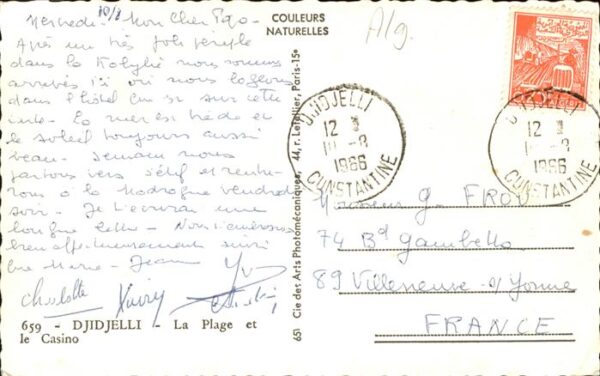 10/8
Mercredi. Mon Cher Papo -
Après un très joli périple
dans la Kabylie nous sommes
arrivés ici où nous logeons
dans l'hôtel sur cette
La mer est tiède et
le soleil toujours aussi
beau. Demain nous
partons vers Sétif et rentre-
rons à la Madrague vendredi
soir. Je t'écrirai une
longue lettre - Nous t'embrassons
bien affectueusement ainsi
que Marie-Jeanne Yv
Charlotte
659 - DJIDJELLI - La Plage et
le Casino
COULEURS
NATURELLES
Alg.
651 Cie des Arts Photomécaniques, 44, r. Letellier, Paris-15e
DJIDJELLI
12 H
10-8
1966
CONSTANTINE
DJIDJELLI
12 H
10-8
1966
CONSTANTINE
Monsieur G. FROU
74 Bd Gambetta
89 Villeneuve-s/Yonne
FRANCE